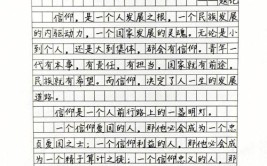 信仰，是一个人发展之根，一个民族发展
的内驱动力，一个国家发展的灵魂。无论是小
到个人，还是大到集体，都会有信仰。青年一
代有本事，有责任，有担当，国家就有前途，
民族就有希望。而信仰，决定了人一生的发展
道路。
信仰是一个人前行路上的一盏明灯。
一个信仰爱国的人，那他必会成为一个忠
贞爱国之士；一个信仰利益的人，那他必会成
为一个精于算计之徒；一个信仰忠义的人，那